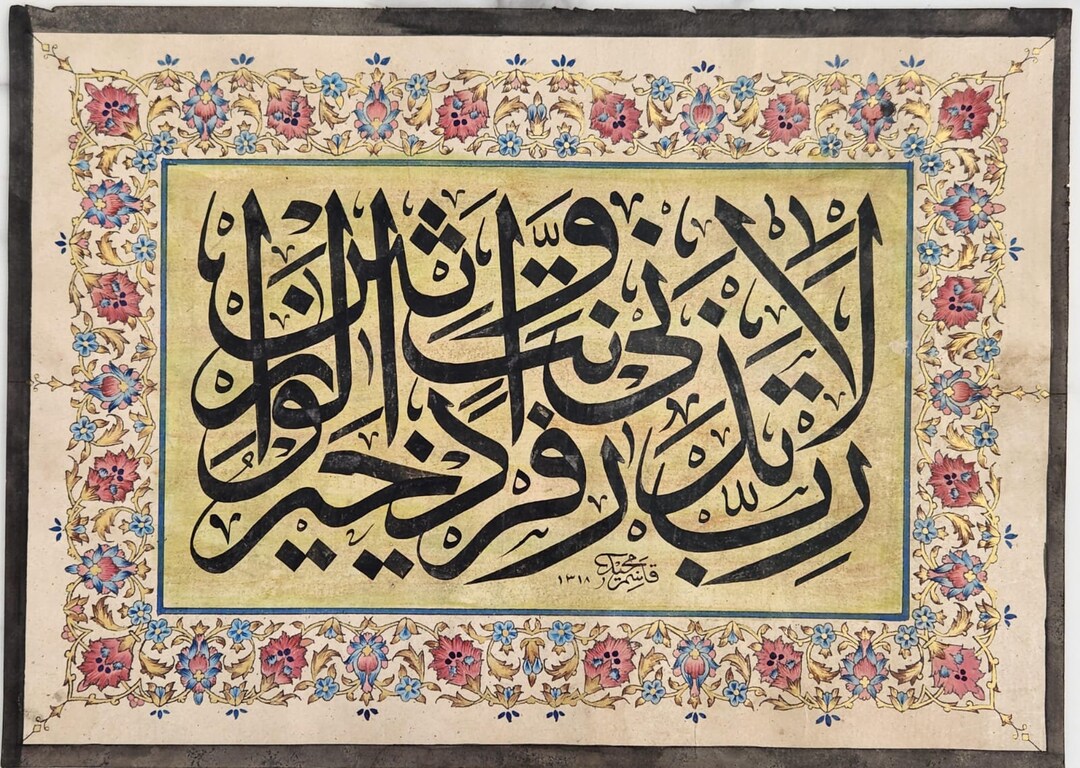 رَبِّ لَا تَذَرْنِي فَرْدًا وَأَنْتَ خَيْرُ الْوَارِثِينَ
١٣١٨